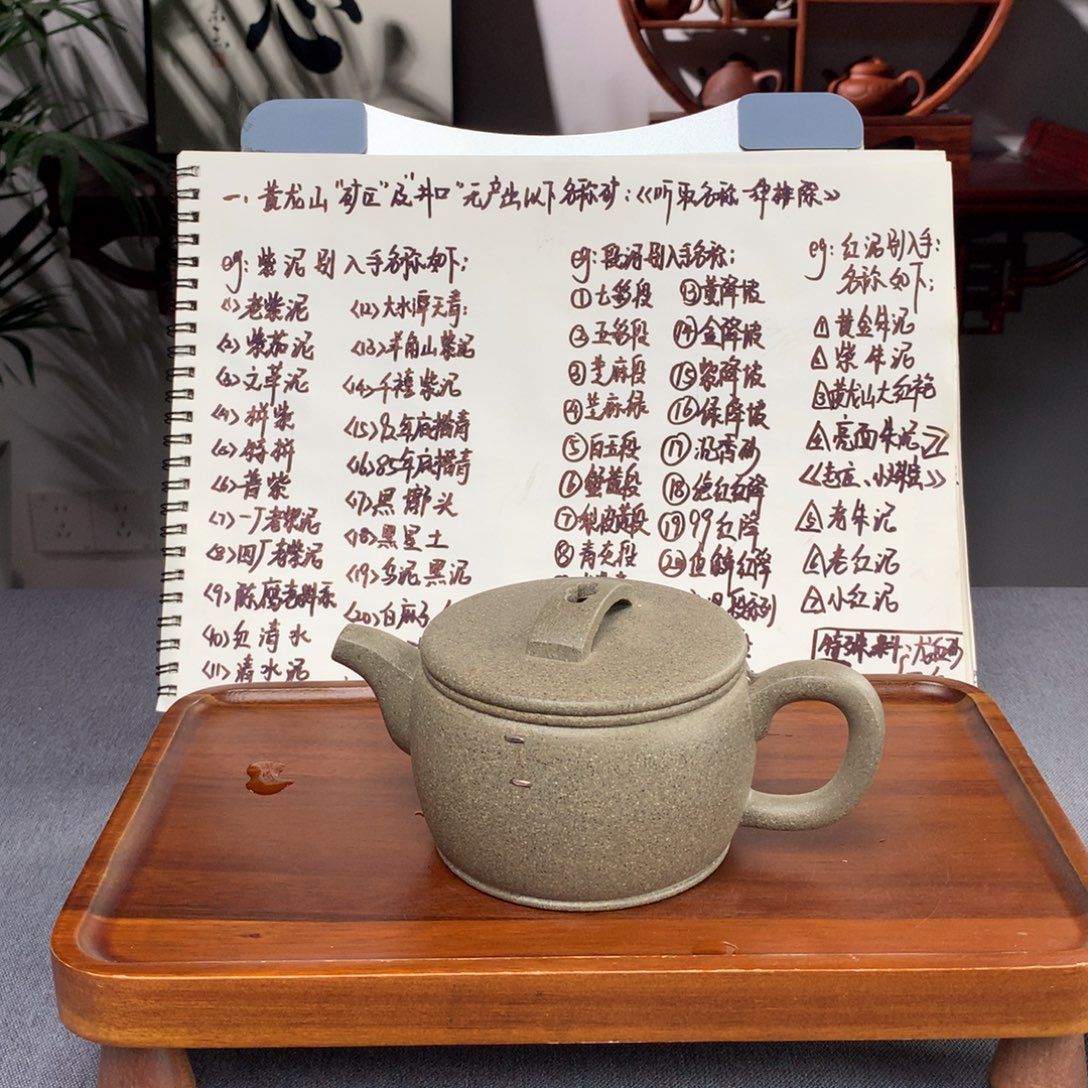 一、黄龙山"矿区"及"井口"无产出以下名称矿:《听取名称一种排除》
eg:紫泥别入手名称如下:
(1)老紫泥
(2)紫茄泥
(3)文革泥
(4)拼紫
(5)特拼
(6)普紫
(7)一厂老紫泥
(8)四厂老紫泥
(9)陈腐老料系
(10)红清水
(11)清水泥
(12)大水潭天青:
(13)羊角山紫泥
(14)千禧紫泥
(15)82年底槽青
(16)85年底槽青
(17)黑墩头
(18)黑星土
(19)乌泥黑泥
(20)白麻子
eg:段泥别入手名称:
①七彩段
②五彩段
③芝麻段
④芝麻绿
⑤白玉段
⑥蟹黄段
⑦梨皮黄段
⑧青灰段
⑬黄降坡
⑭金降坡
⑮紫降坡
⑯绿降坡
⑰沉香砂
⑱绝红红降
⑲99红降
⑳鱼鳞红降
eg:红泥别入手:
名称如下:
1黄金朱泥
2紫朱泥
3黄龙山大红袍
4亮面朱泥
5老朱泥
6老红泥
7小红泥
特殊料:龙血砂